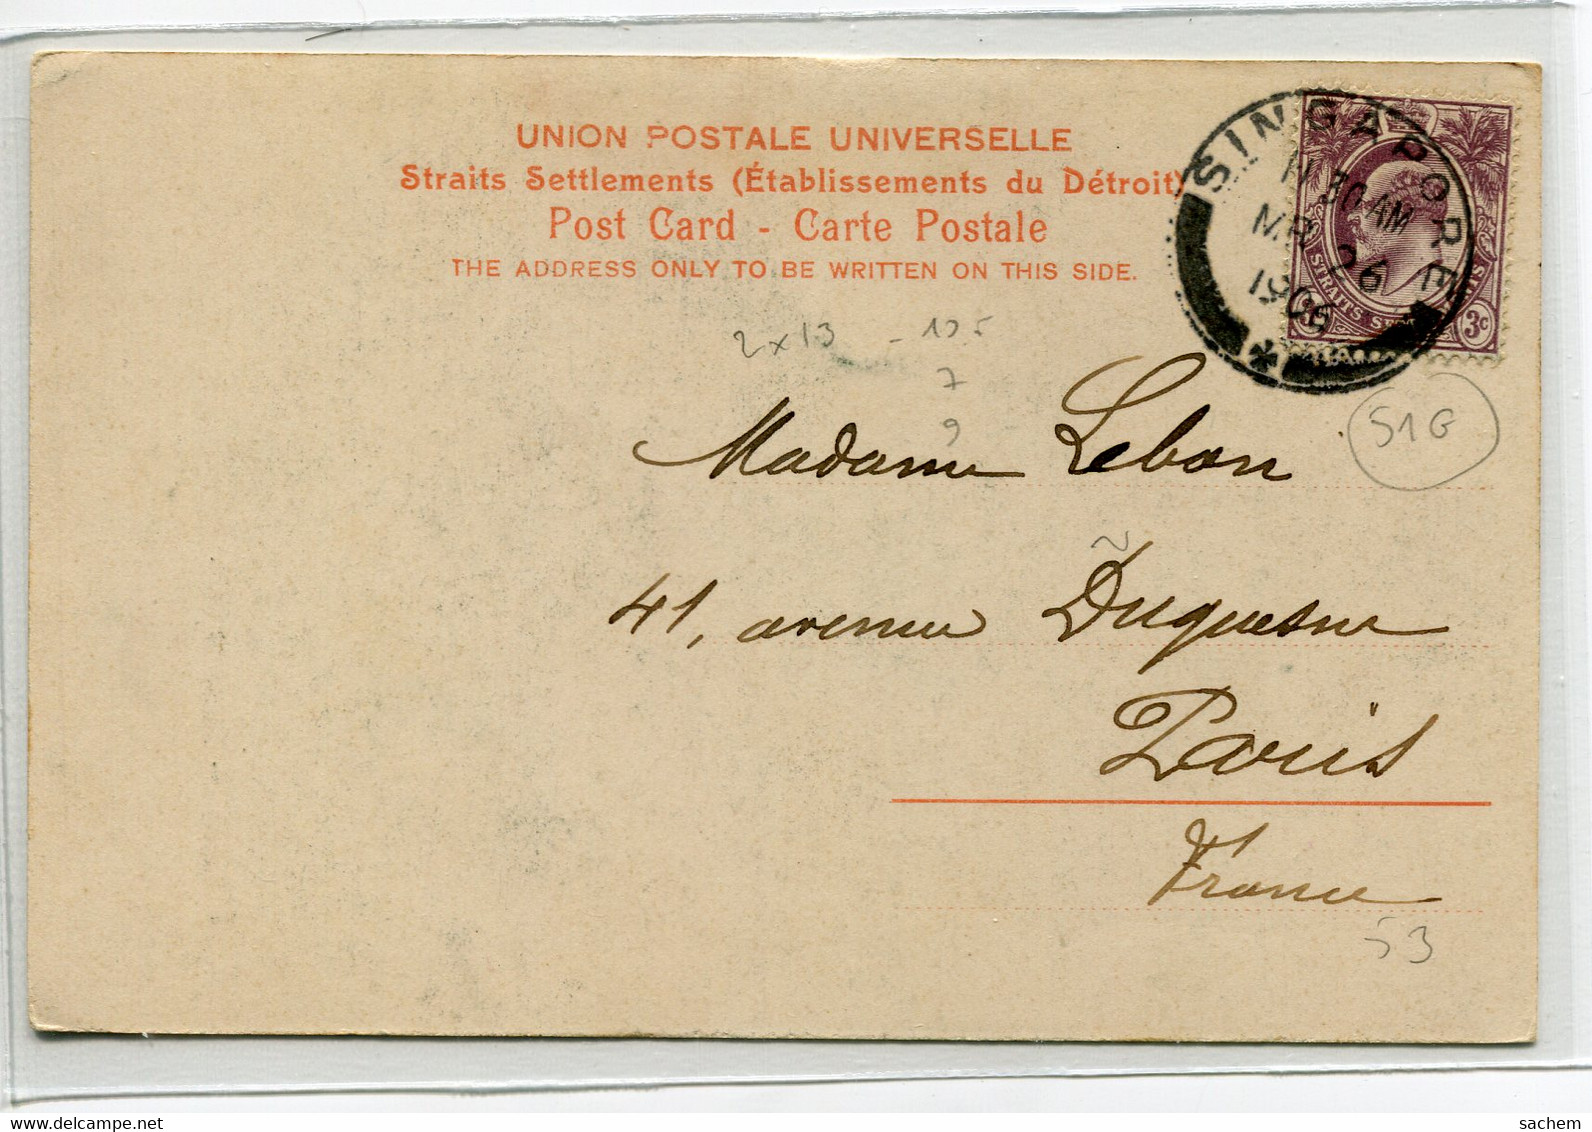 UNION POSTALE UNIVERSELLE
Straits Settlements (Établissements du Détroit)
Post Card - Carte Postale
THE ADDRESS ONLY TO BE WRITTEN ON THIS SIDE.
SINGAPORE
11 30 AM
MR 26
1906
STRAITS SETTLEMENTS
3c
2x13 - 195
7
9
Madame Lebon
SIG
41, avenue Duquesne
Paris
France
53
sachem